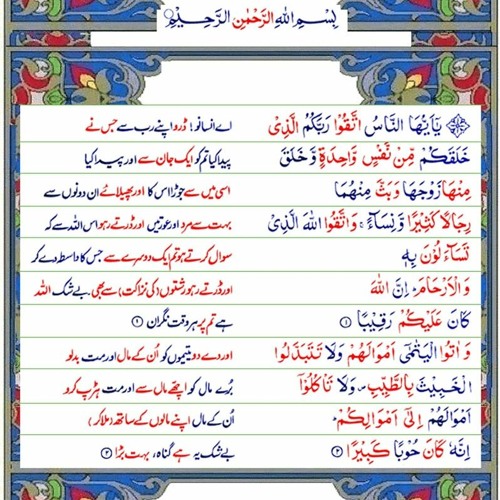 بِسْمِ اللهِ الرَّحْمٰنِ الرَّحِيْمِ
يٰۤاَيُّهَا النَّاسُ اتَّقُوْا رَبَّكُمُ الَّذِىْ اے انسانو! ڈرو اپنے رب سے جس نے
خَلَقَكُمْ مِّنْ نَّفْسٍ وَّاحِدَةٍ وَّخَلَقَ پیدا کیا تم کو ایک جان سے اور پیدا کیا
مِنْهَا زَوْجَهَا وَبَثَّ مِنْهُمَا اسی میں سے جوڑا اس کا اور پھیلائے ان دونوں سے
رِجَالًا كَثِيْرًا وَّنِسَآءً ۚ وَاتَّقُوا اللهَ الَّذِىْ بہت سے مرد اور عورتیں اور ڈرتے رہو اس اللہ سے کہ
تَسَآءَلُوْنَ بِهٖ سوال کرتے ہو تم ایک دوسرے سے جس کا واسطہ دے کر
وَالْاَرْحَامَ ؕ اِنَّ اللهَ اور ڈرتے رہو رشتوں (کی نزاکت) سے بھی۔ بے شک اللہ
كَانَ عَلَيْكُمْ رَقِيْبًا ۱ ہے تم پر ہر وقت نگران ۱
وَاٰتُوا الْيَتٰمٰٓى اَمْوَالَهُمْ وَلَا تَتَبَدَّلُوا اور دے دو یتیموں کو اُن کے مال اور مت بدلو
الْخَبِيْثَ بِالطَّيِّبِ ۪ وَلَا تَاْكُلُوْۤا بُرے مال کو اچھے مال سے اور مت ہڑپ کرو
اَمْوَالَهُمْ اِلٰٓى اَمْوَالِكُمْ ؕ اُن کے مال اپنے مالوں کے ساتھ (ملا کر)
اِنَّهٗ كَانَ حُوْبًا كَبِيْرًا ۲ بے شک یہ ہے گناہ، بہت بڑا ۲